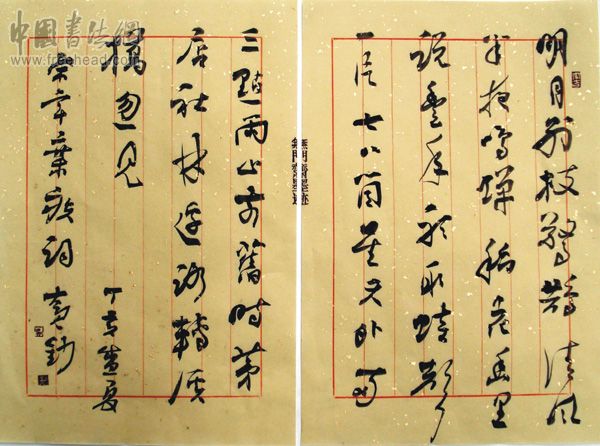 中国書法網
www.freehead.com
明月别枝驚鵲清風
半夜鳴蟬稻花香里
説豐年听取蛙聲
一片七八箇星天外两
三點雨山前舊時茅
店社林邊路轉溪
橋忽見
丁亥盛夏
宋辛棄疾詞 鈔